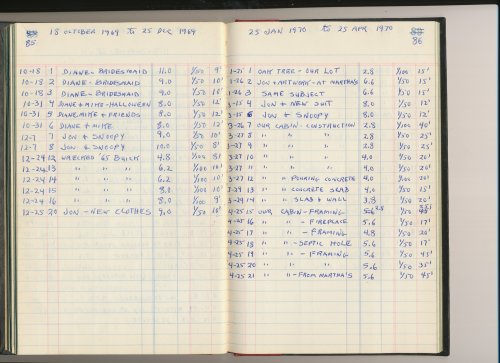 18 OCTOBER 1969 to 25 DEC 1969
85
10-18 1 DIANE - BRIDESMAID 11.0 1/50 9'
10-18 2 DIANE - BRIDESMAID 9.0 1/50 10'
10-18 3 DIANE - BRIDESMAID 9.0 1/50 10'
10-31 4 DIANE & MIKE - HALLOWEEN 8.0 1/50 12'
10-31 5 DIANE, MIKE & FRIENDS 8.0 1/50 12'
10-31 6 DIANE & MIKE 8.0 1/50 10'
12-7 7 JON & SNOOPY 9.0 1/50 10'
12-7 8 JON & SNOOPY 10.0 1/50 8'
12-24 12 WRECKED 65 BUICK 4.8 1/100 8'
12-24 13 " " " 6.2 1/100 10'
12-24 14 " " " 6.2 1/100 10'
12-24 15 " " " 8.0 1/100 10'
12-24 16 " " " 8.0 1/100 9'
12-25 20 JON - NEW CLOTHES 9.0 1/50 10'
25 JAN 1970 to 25 APR 1970
86
1-25 1 OAK TREE - OUR LOT 2.8 1/100 15'
1-26 2 JON & ARTWORK - AT MARTHA'S 5.6 1/50 15'
1-26 3 SAME SUBJECT 5.6 1/50 15'
3-15 4 JON & NEW SUIT 8.0 1/50 12'
3-15 5 JON & SNOOPY 8.0 1/50 12'
3-26 7 OUR CABIN - CONSTRUCTION 2.8 1/100 40'
3-27 8 " " " 2.8 1/50 25'
3-27 9 " " " 2.8 1/50 25'
3-27 10 " " " 4.0 1/50 20'
3-27 11 " " " 4.0 1/50 20'
3-27 12 " " POURING CONCRETE 4.0 1/50 20'
3-29 13 " " CONCRETE SLAB 4.0 1/50 25'
3-29 14 " " SLAB & WALL 3.8 1/50 20'
4-25 15 OUR CABIN - FRAMING 2.8 1/50 35'
4-25 16 " " - FIREPLACE 5.6 1/50 17'
4-25 17 " " - FRAMING 4.8 1/50 20'
4-25 18 " " - SEPTIC HOLE 5.6 1/50 17'
4-25 19 " " - FRAMING 5.6 1/50 25'
4-25 20 " " " 5.6 1/50 35'
4-25 21 " " - FROM MARTHA'S 5.6 1/50 45'